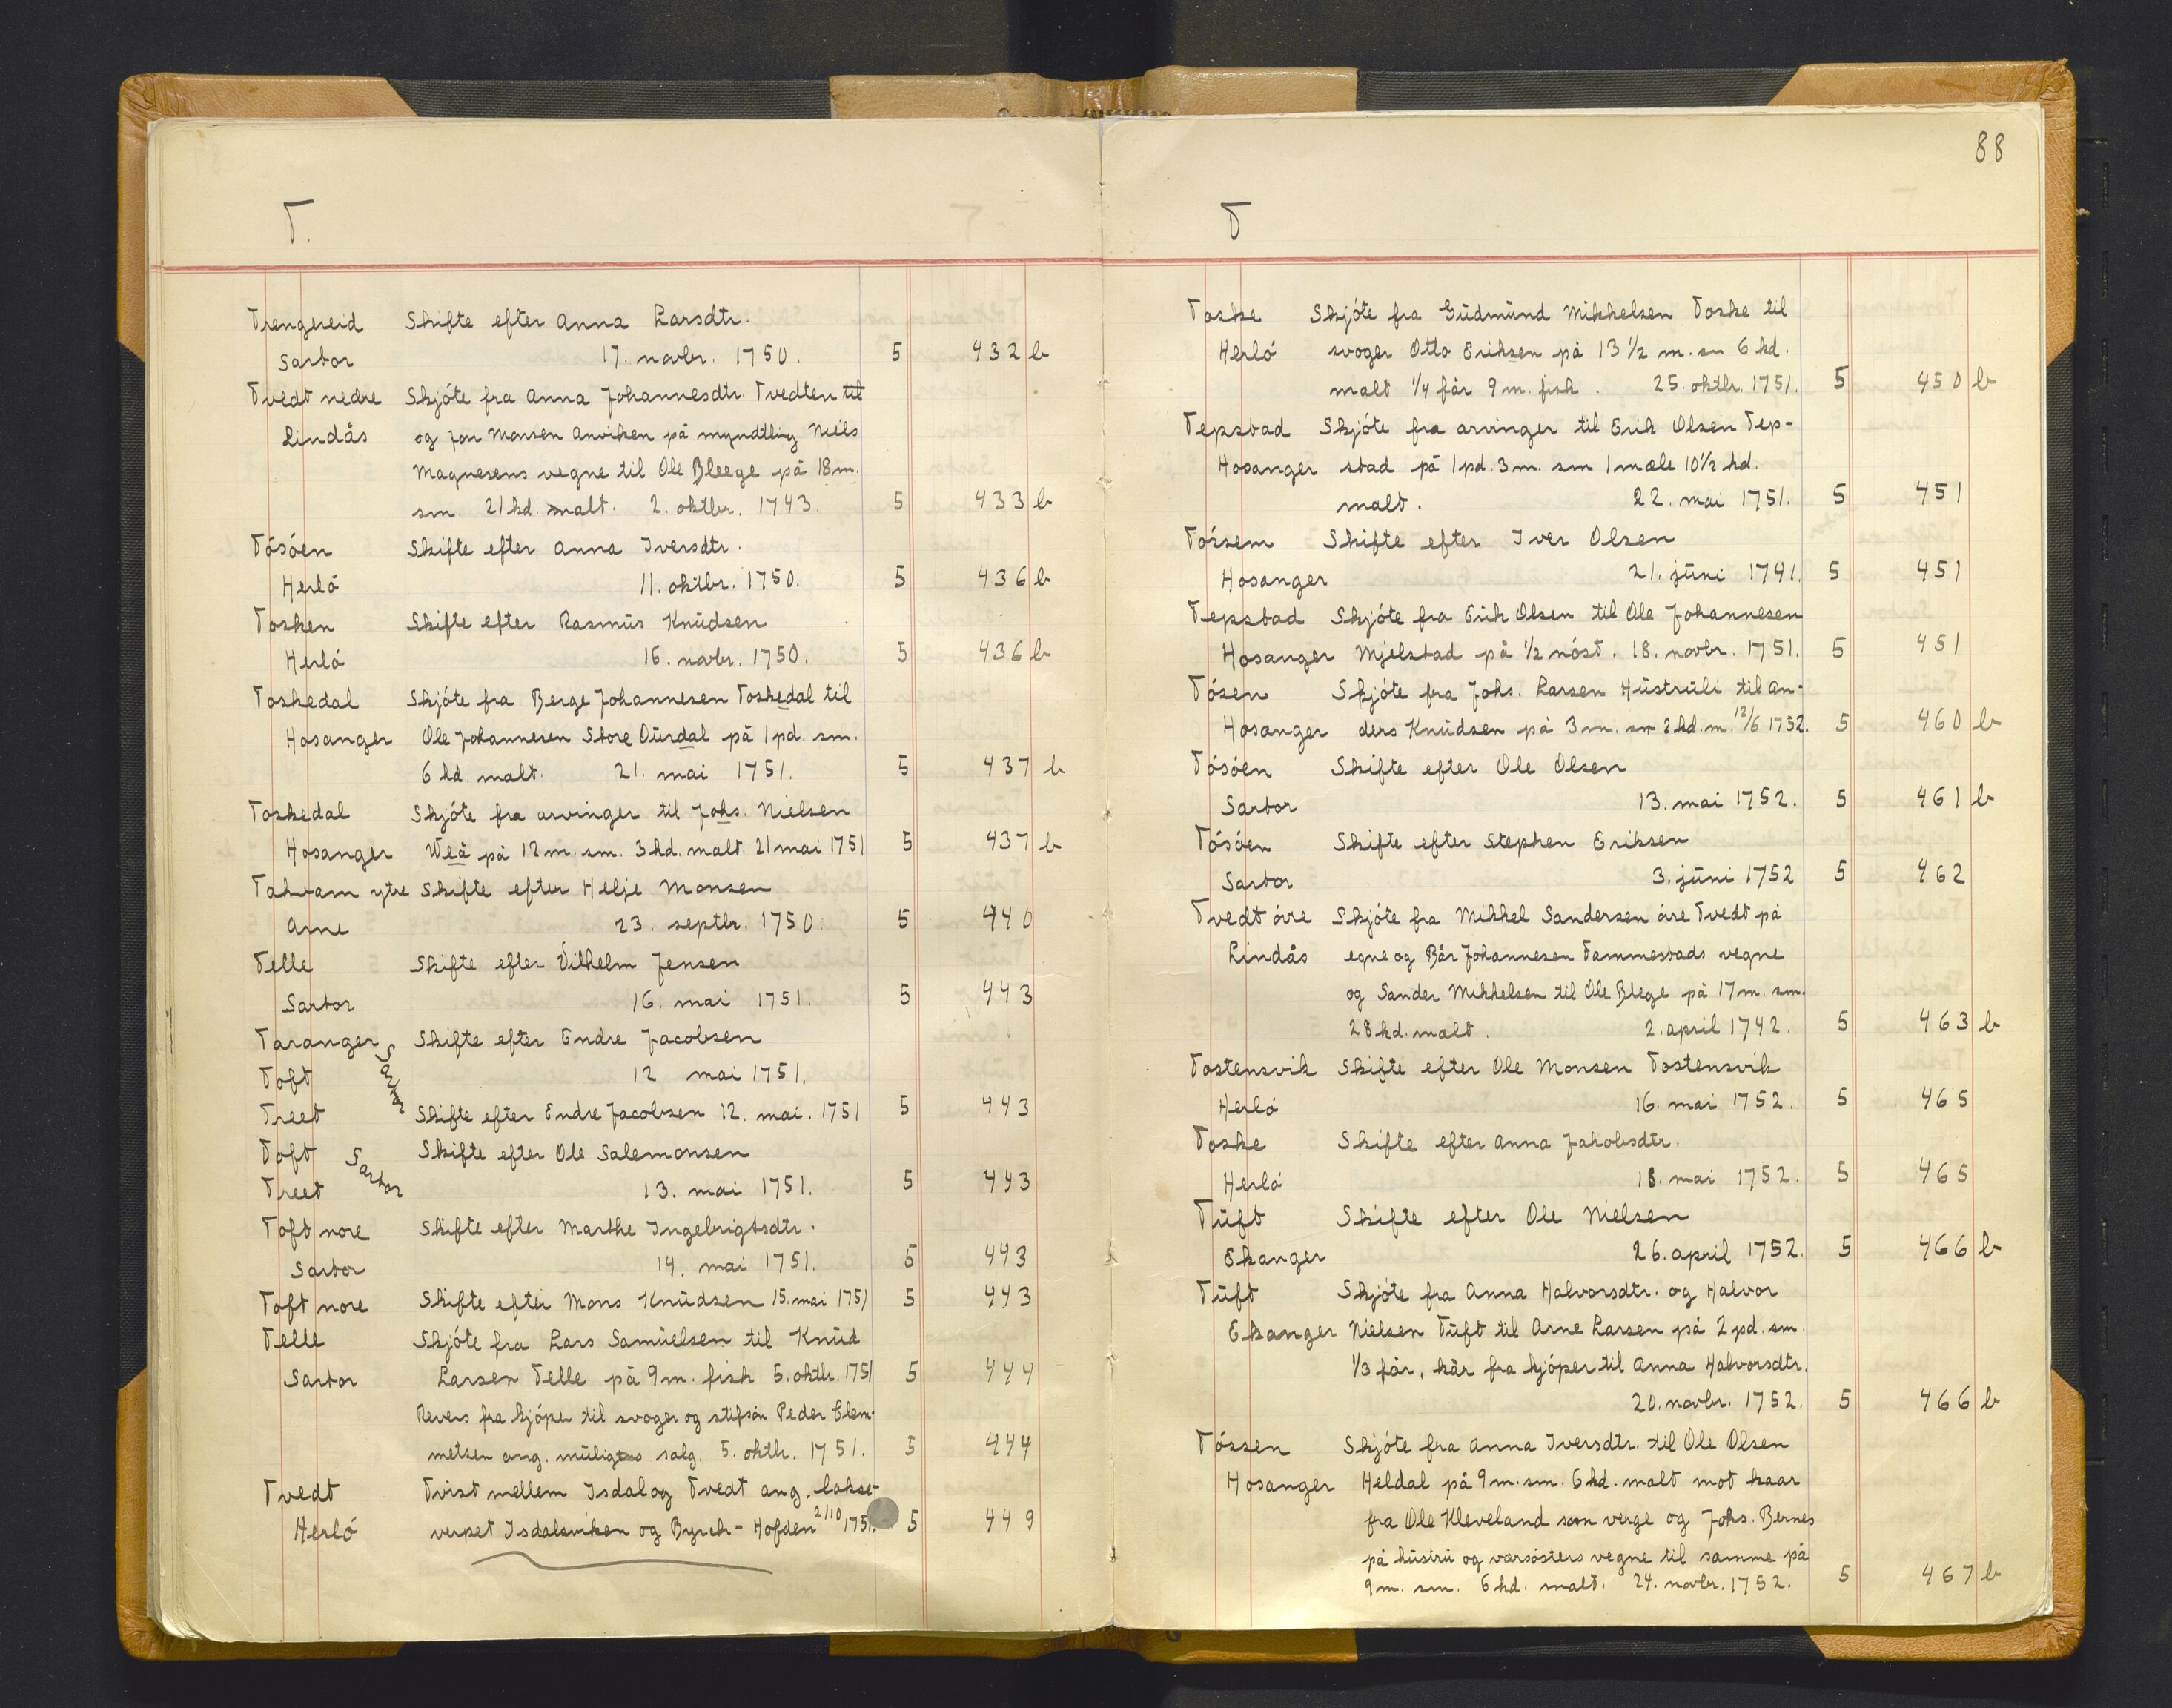 T.
Trengereid Skifte efter Anna Larsdtr.
Sartor 17. novbr. 1750. 5 432 b
Tvedt nedre Skjóte fra Anna Johannesdtr. Tvedten til
Lindås og Jon Monsen Anviken på myndtling Niels
Magnesens vegne til Ole Bleege på 18 m.
sm. 21 kd. malt. 2. oktbr. 1743. 5 433 b
Tósóen Skifte efter Anna Iversdtr.
Herló 11. oktbr. 1750. 5 436 b
Tosken Skifte efter Rasmus Knudsen
Herló 16. novbr. 1750. 5 436 b
Toskedal Skjóte fra Berge Johannesen Toskedal til
Hosanger Ole Johannesen Store Ourdal på 1 pd. sm.
6 kd. malt. 21. mai 1751. 5 437 b
Toskedal Skjóte fra arvinger til Johs. Nielsen
Hosanger Weå på 12 m. sm. 3 kd. malt. 21 mai 1751 5 437 b
Takvam ytre Skifte efter Helje Monsen
Arne 23. septbr. 1750. 5 440
Telle Skifte efter Vilhelm Jensen
Sartor 16. mai 1751. 5 443
Taranger Skifte efter Endre Jacobsen
Toft Sartor 12 mai 1751.
Treet Skifte efter Endre Jacobsen 12. mai. 1751 5 443
Toft Skifte efter Ole Salemonsen
Treet Sartor 13. mai 1751. 5 443
Toft nore Skifte efter Marthe Ingebrigtsdtr.
Sartor 14. mai 1751. 5 443
Toft nore Skifte efter Mons Knudsen 15. mai 1751 5 443
Telle Skjóte fra Lars Samuelsen til Knud
Sartor Larsen Telle på 9 m. fisk 5. oktbr. 1751 5 444
Revers fra kjóper til svoger og stifsón Peder Clem-
metsen ang. muligens salg. 5. oktbr. 1751. 5 444
Tvedt Tvist mellem Isdal og Tvedt ang. lakse-
Herló verpet Isdalsviken og Byrch-Hofden 2/10 1751. 5 449
88
T
Toske Skjóte fra Gudmund Mikkelsen Toske til
Herló svoger Otto Eriksen på 13 1/2 m. sm 6 kd.
malt 1/4 får 9 m. fisk. 25. oktbr. 1751. 5 450 b
Tepstad Skjóte fra arvinger til Erik Olsen Tep-
Hosanger stad på 1 pd. 3 m. sm 1 mæle 10 1/2 kd.
malt. 22. mai 1751. 5 451
Tóssem Skifte efter Iver Olsen
Hosanger 21. juni 1741. 5 451
Tepstad Skjóte fra Erik Olsen til Ole Johannesen
Hosanger Mjelstad på 1/2 nóst. 18. novbr. 1751. 5 451
Tósen Skjóte fra Johs. Larsen Hustruli til An-
Hosanger ders Knudsen på 3 m. sm 2 kd. m. 12/6 1752. 5 460 b
Tósóen Skifte efter Ole Olsen
Sartor 13. mai 1752. 5 461 b
Tósóen Skifte efter Stephen Eriksen
Sartor 3. juni 1752 5 462
Tvedt óvre Skjóte fra Mikkel Sandersen óvre Tvedt på
Lindås egne og Bår Johannesen Tammestads vegne
og Sander Mikkelsen til Ole Blege på 17 m. sm.
28 kd. malt. 2. april 1742. 5 463 b
Tostensvik Skifte efter Ole Monsen Tostensvik
Herló 16. mai 1752. 5 465
Toske Skifte efter Anna Jakobsdtr.
Herló 18. mai 1752. 5 465
Tuft Skifte efter Ole Nielsen
Ekanger 26. april 1752. 5 466 b
Tuft Skjóte fra Anna Halvorsdtr. og Halvor
Ekanger Nielsen Tuft til Arne Larsen på 2 pd. sm.
1/3 får, kår fra kjóper til Anna Halvorsdtr.
20. novbr. 1752. 5 466 b
Tóssen Skjóte fra Anna Iversdtr. til Ole Olsen
Hosanger Heldal på 9 m. sm. 6 kd. malt mot kaar
fra Ole Kleveland som verge og Johs. Bernes
på hustru og varsósters vegne til samme på
9 m. sm. 6 kd. malt. 24. novbr. 1752. 5 467 b